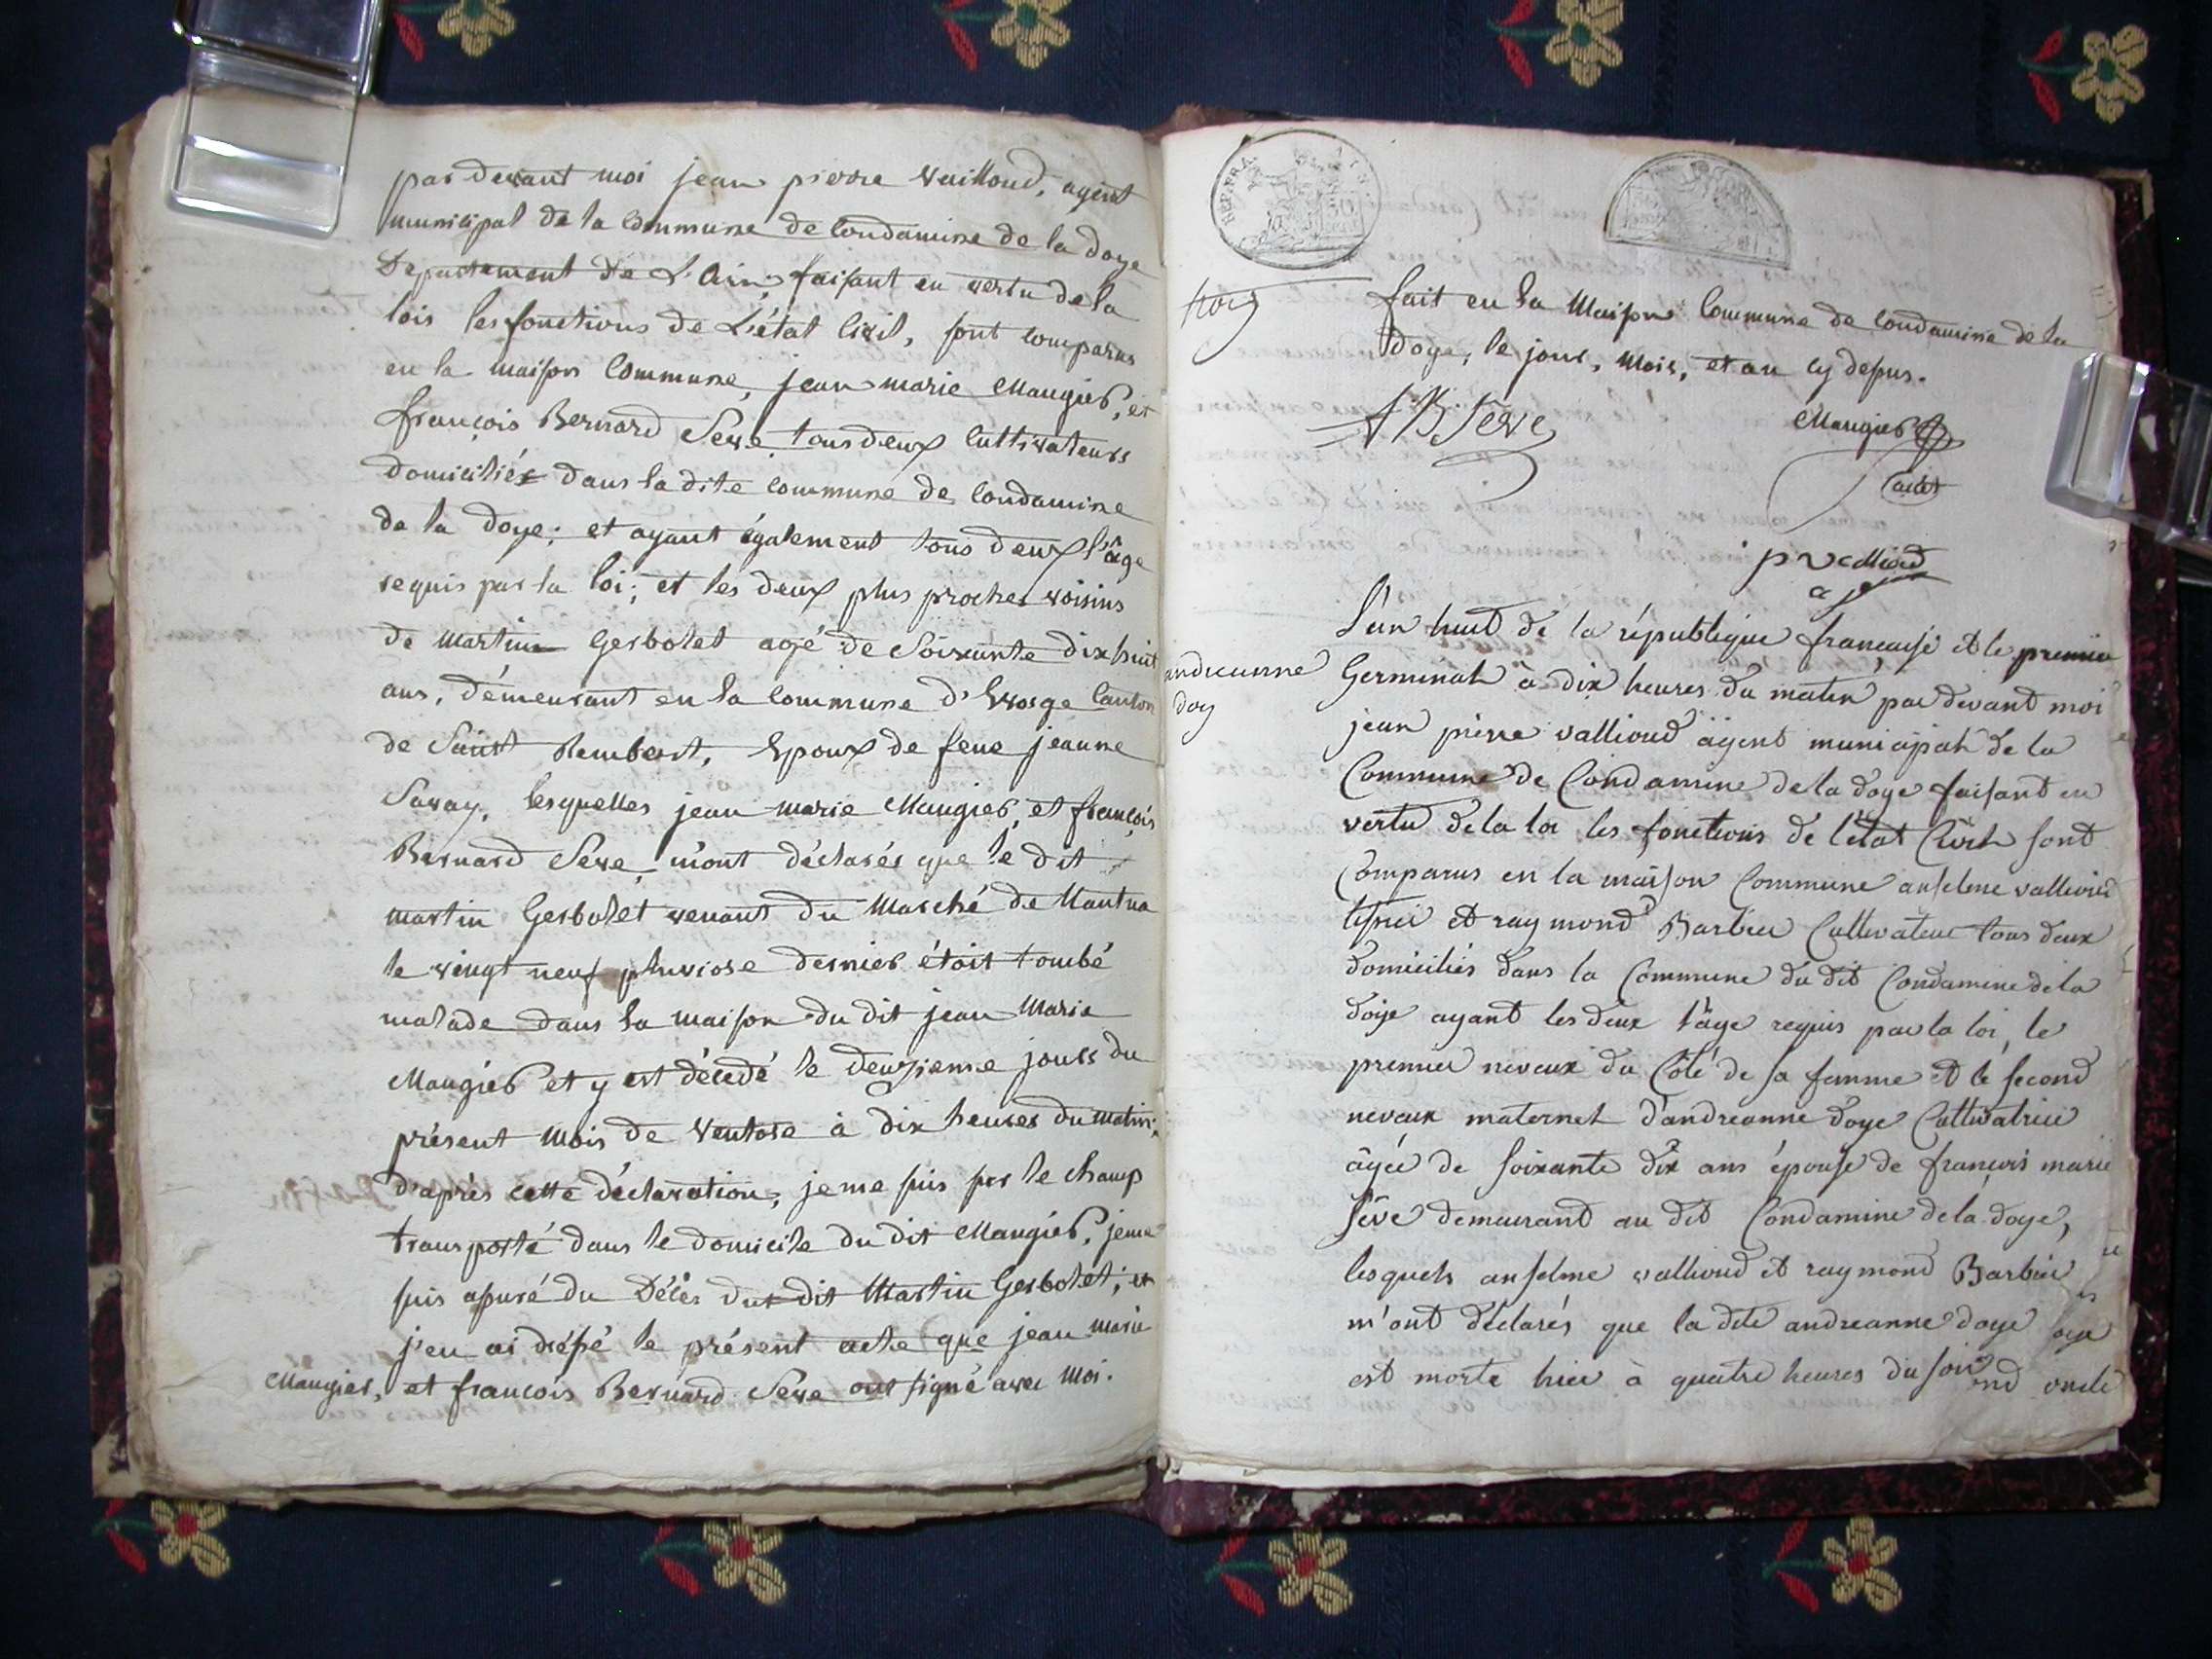 par devant moi jean pierre vailloud, agent
municipal de la commune de Condamine de la doye
Departement de L'Ain, faisant en vertu de la
lois les fonctions de L'état Civil, sont comparus
en la maison Commune, jean marie Maugier, et
françois Bernard Seve tous deux Cultivateurs
domiciliés dans la dite commune de Condamine
de la doye; et ayant également tous deux l'âge
requis par la loi; et les deux plus proches voisins
de Martin Gerbolet agé de Soixante dix huit
ans, démeurant en la commune d'Evosge Canton
de Saint Rembert, Epoux de feue jeanne
Savay, lesquelles jean marie Maugier, et françois
Bernard Seve, m'ont déclarés que le dit
martin Gerbolet venant du Marché de Nantua
le vingt neuf pluviose dernier étoit tombé
malade dans la maison du dit jean Marie
Maugier et y est décedé le deuxieme jours du
présent mois de Ventose à dix heures du matin,
d'après cette déclaration, je me suis sur le champ
transporté dans le domicile du dit Maugier, je me
suis assuré du Décès du dit Martin Gerbolet; et
j'en ai dréssé le présent acte que jean marie
Maugier, et francois Bernard Seve ont signé avec moi.
REP. FRA.
fait en la Maison Commune de Condamine de la
doye, le jour, mois, et an cy dessus.
f B Seve
Maugier
jp vallioud
a
L'an huit de la république francaise et le premier
andreanne
doy
Germinal à dix heures du matin par devant moi
jean pierre vallioud agent municipal de la
Commune de Condamine de la doye faisant en
vertu de la loi les fonctions de l'état Civil sont
Comparus en la maison Commune anselme vallioud
tisier et raymond Barbier Cultivateur tous deux
domiciliés dans la Commune du dit Condamine de la
doye ayant les deux l'âge requis par la loi, le
premier neveux du Côté de sa femme et le second
neveux maternel d'andreanne doye Cultivatrice
âgée de soixante dix ans épouse de francois marie
Séve demeurant au dit Condamine de la doye,
lesquels anselme vallioud et raymond Barbier
m'ont déclarés que la dite andreanne doye
est morte hier à quatre heures du soir
oncle